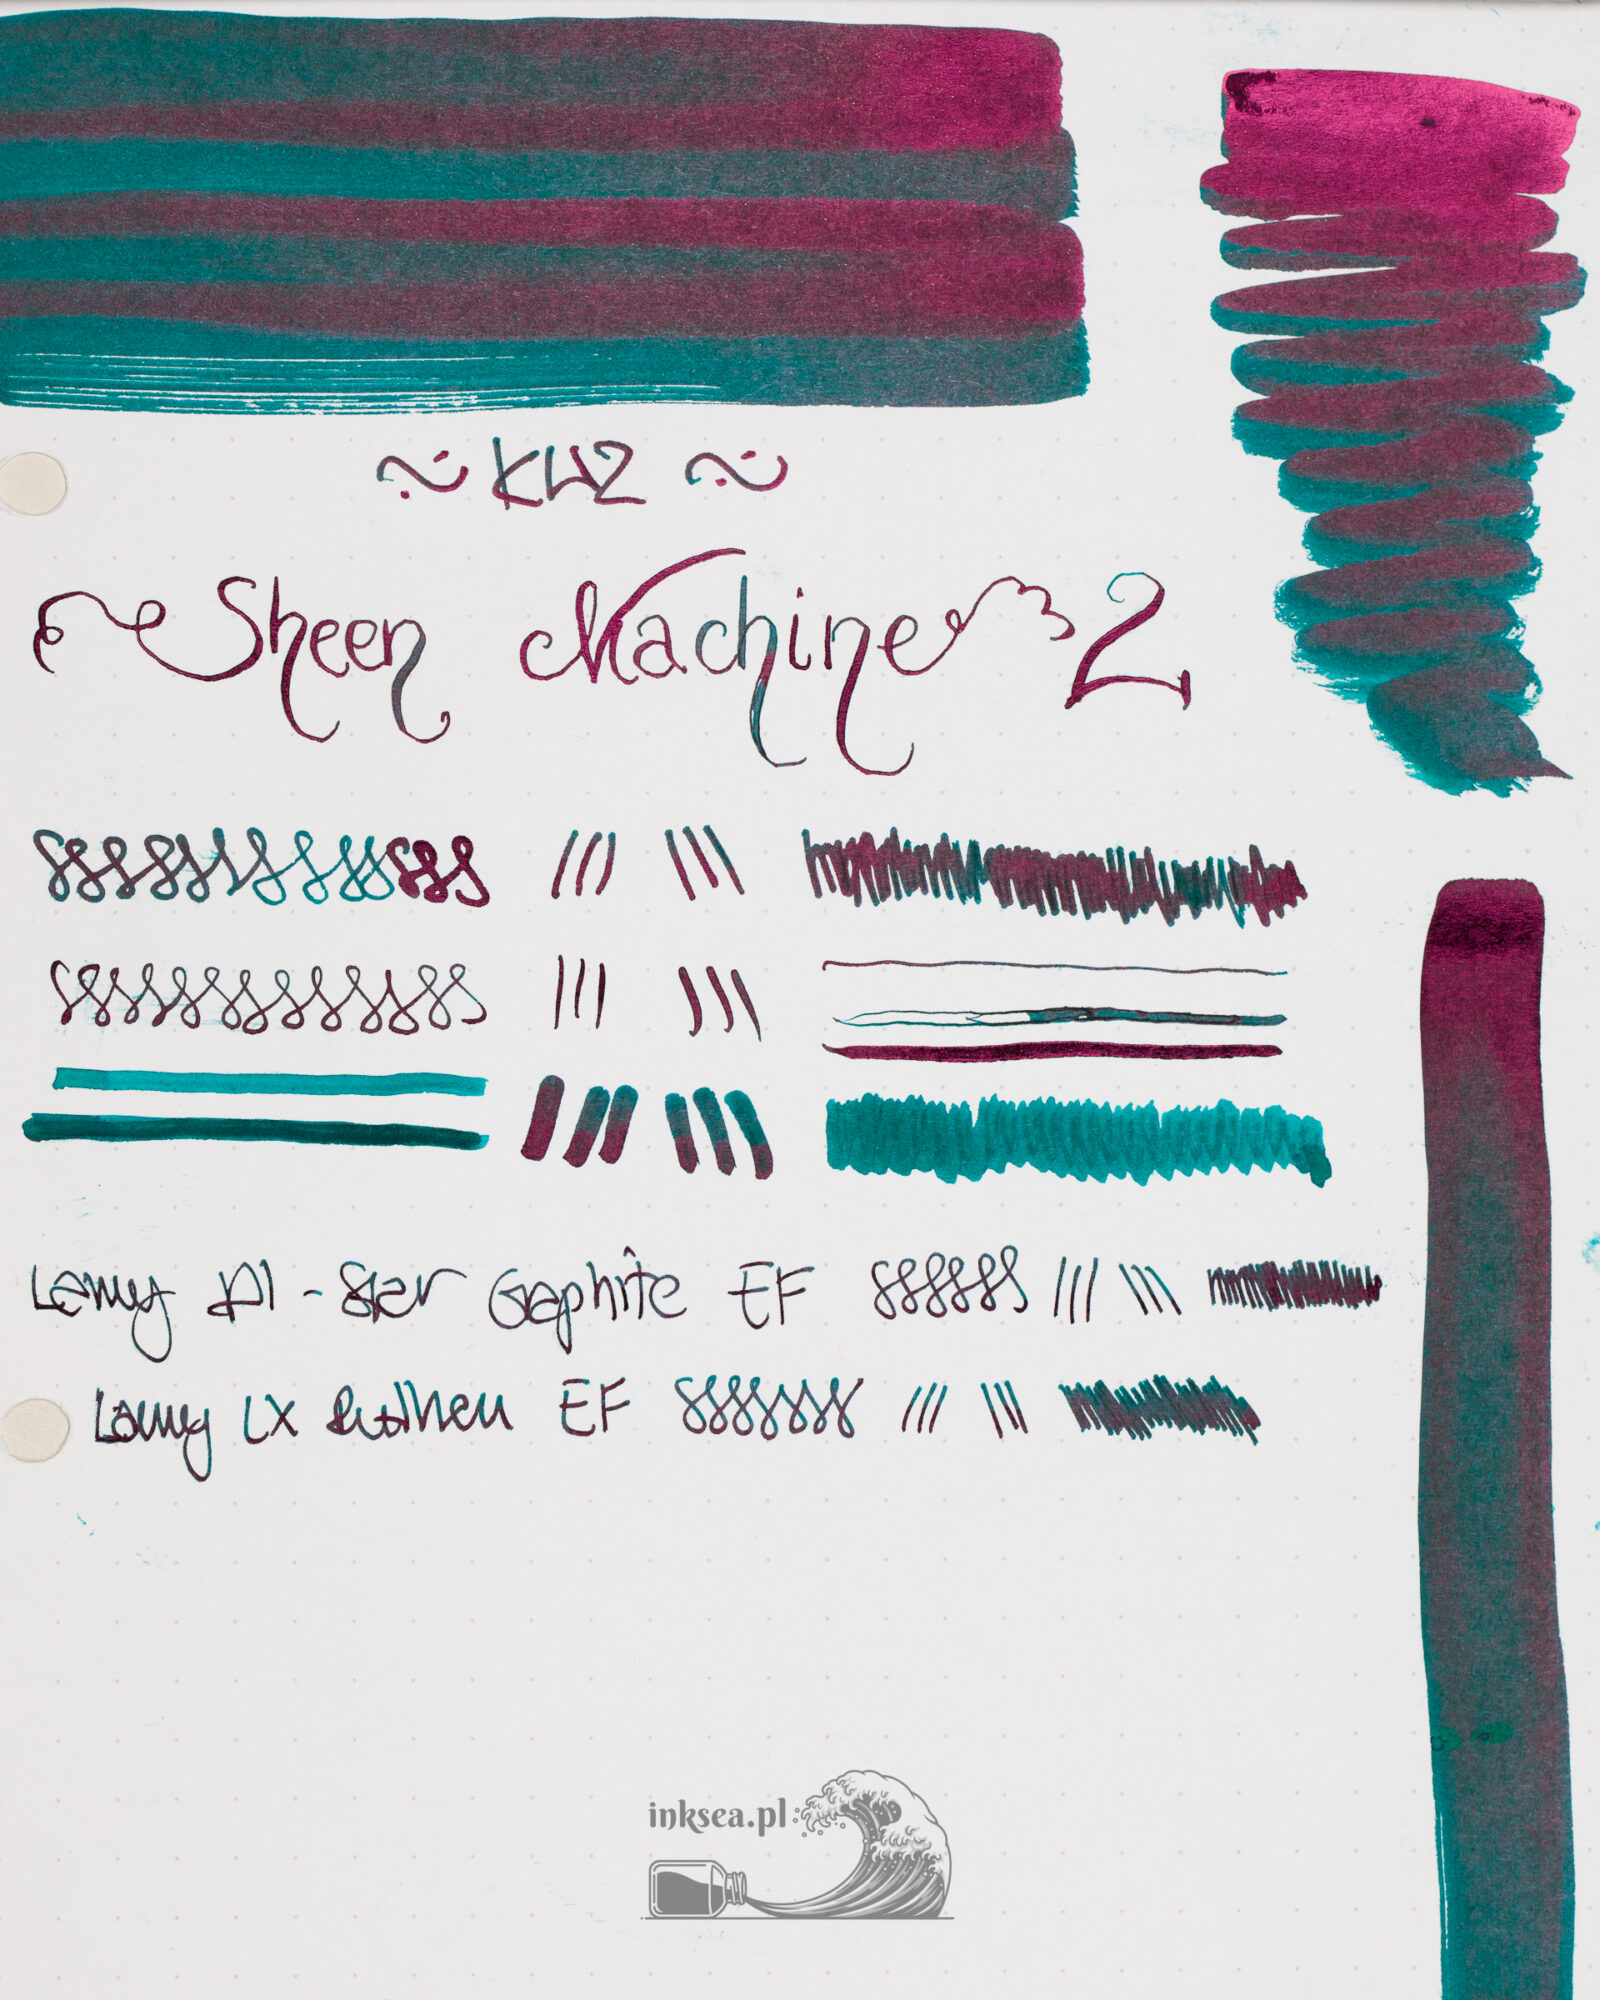 ~ KWZ ~
Sheen Machine 2
Lamy Al-Star Gaphite EF
Lamy LX Ruthen EF
inksea.pl